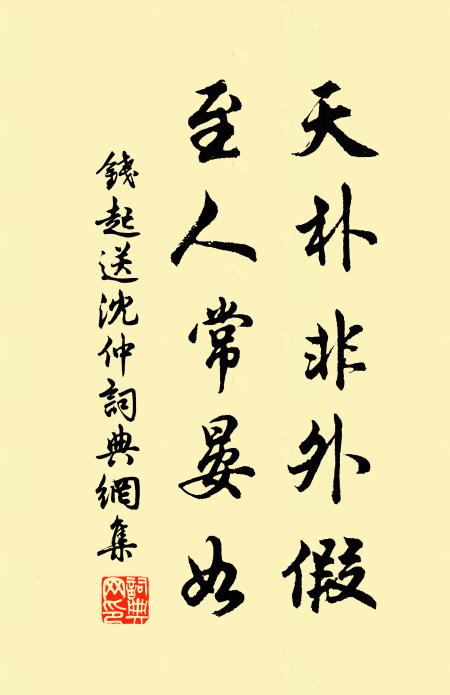 天朴非外假
至人常晏如
錢起送沈仲詞典網集
詞典網印